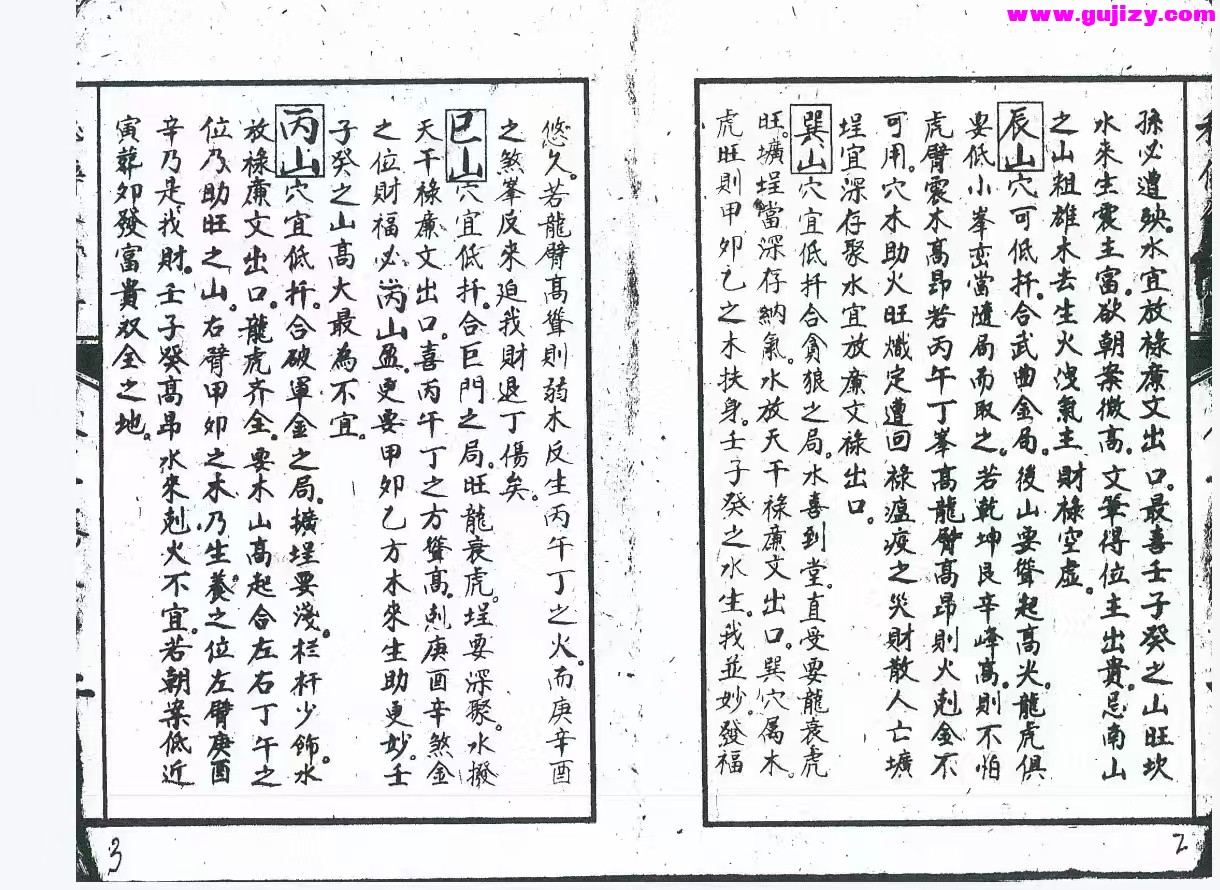 www.gujizy.com
孫必遭殃。水宜放祿廉文出口。最喜壬子癸之山旺坎
水來生震主富。欲朝案微高。文筆得位主出貴。忌南山
之山粗雄木去生火洩氣主財祿空虛。
辰山穴可低扦。合武曲金局。後山要聳起高火。龍虎俱
要低小峯巒當隨局而取之。若乾坤艮辛峰高則不怕
虎臂震木高昂若丙午丁峯高龍臂高昂則火剋金不
可用。穴木助火旺熾定遭回祿瘟疫之災財散人亡壙
埕宜深存聚水宜放廉文祿出口。
巽山穴宜低扦合貪狼之局。水喜到堂。直受要龍衰虎
旺。壙埕當深存納氣。水放天干祿廉文出口。巽穴属木。
虎旺則甲卯乙之木扶身。壬子癸之水生。我並妙。發福
2
悠久。若龍臂高聳則弱木反生丙午丁之火。而庚辛酉
之煞峯反來迫我財退丁傷矣。
巳山穴宜低扦。合巨門之局。旺龍衰虎。埕要深聚。水撥
天干祿廉文出口。喜丙午丁之方聳高。剋庚酉辛煞金
之位財福必丙山盈。更要甲卯乙方木來生助更妙。壬
子癸之山高大最為不宜。
丙山穴宜低扦。合破軍金之局。擴埕要淺。栏杆少飾水
放祿廉文出口。龍虎齐全。要木山高起合左右丁午之
位乃助旺之山。右臂甲卯之木。乃生養之位左臂庚酉
辛乃是我財。壬子癸高昂水來剋火不宜。若朝案低近
寅葬卯發富貴双全之地。
3